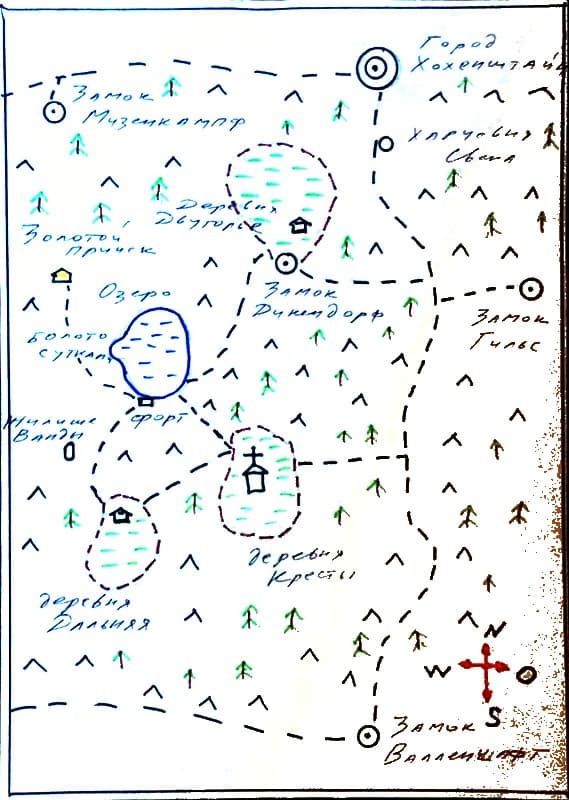 Город
Хохенштайн
Замок
Мизенкампф
Харчевня
Свена
Деревня
Двугорье
Золотой
прииск
Озеро
Замок
Дикендорф
Замок
Гильс
Болото
суткай
Жилище
Ванды
Форт
деревня
Кресты
деревня
Дальняя
N
W
O
S
Замок
Валленшафт